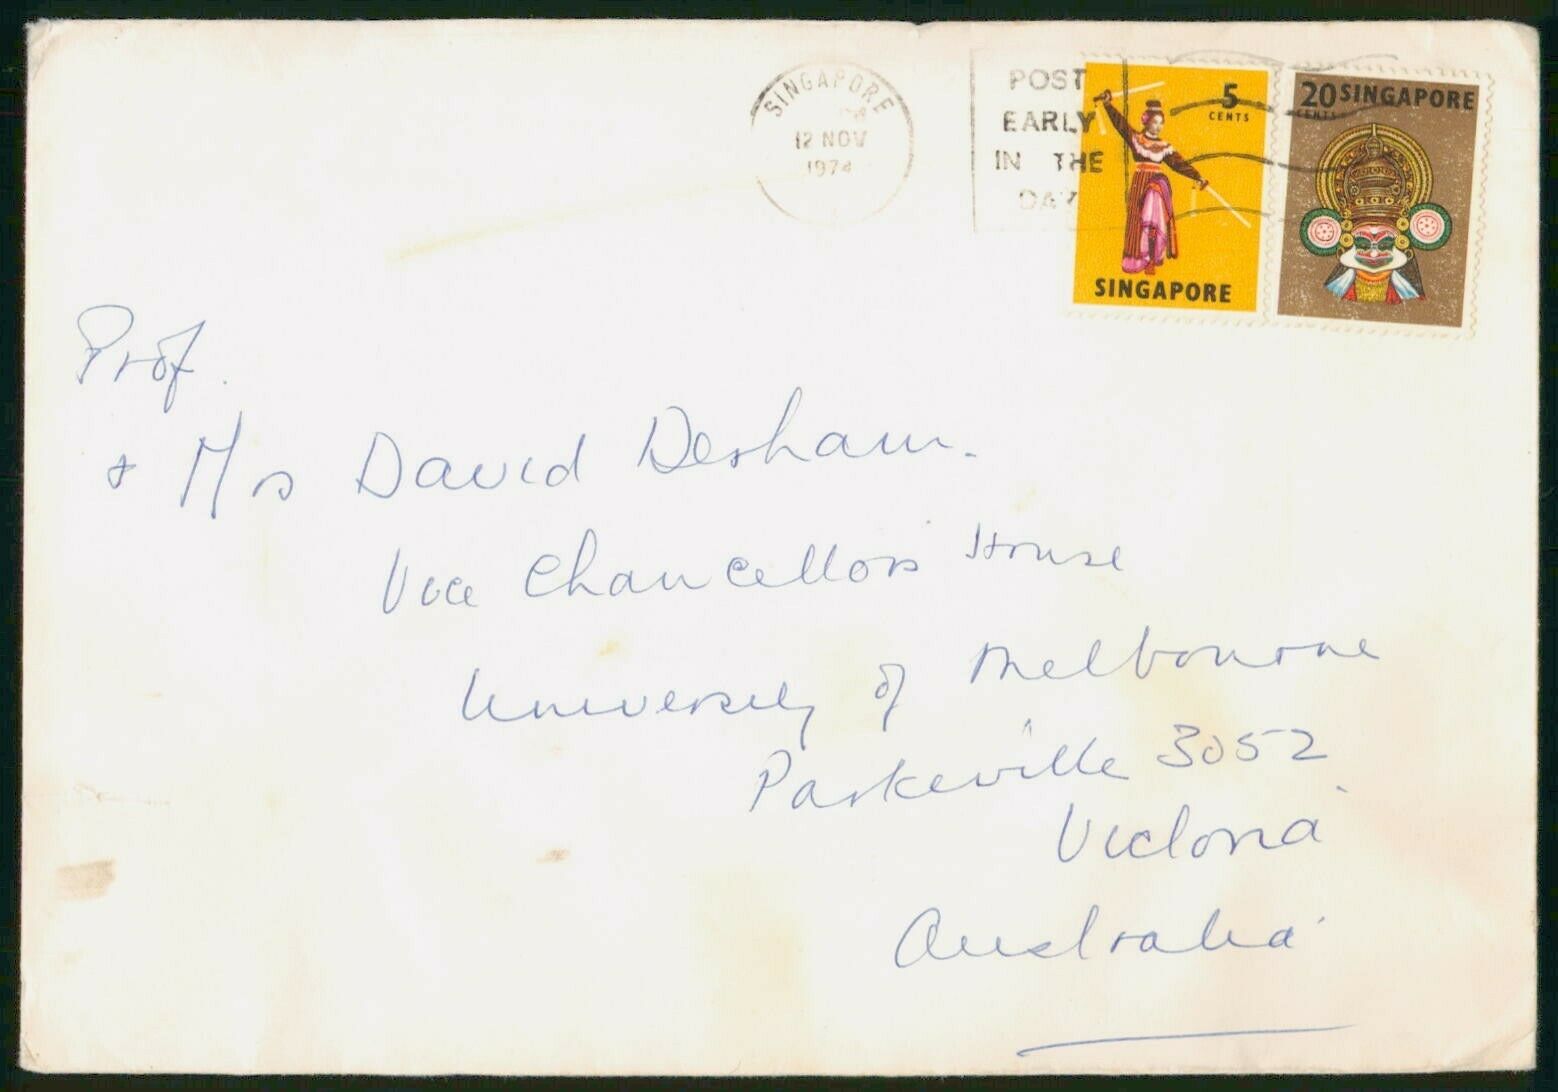 SINGAPORE
12 NOV
1974
POST
EARLY
IN THE
DAY
5
CENTS
SINGAPORE
20 SINGAPORE
CENTS
Prof.
+ Mrs David Derham.
Vice Chancellors House
University of Melbourne
Parkeville 3052
Victoria
Australia